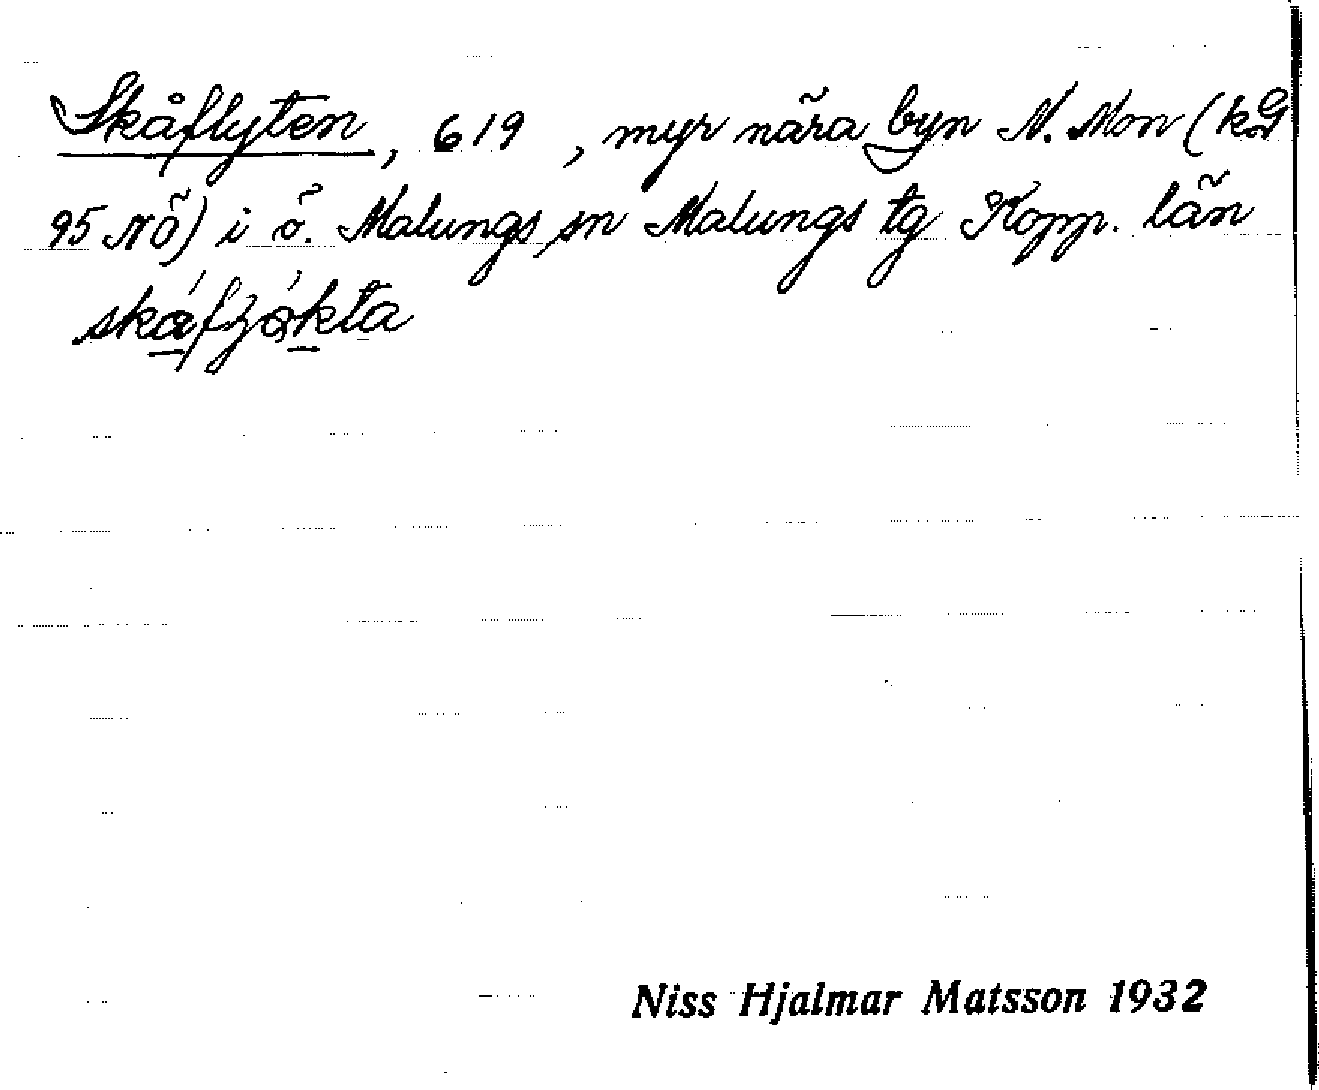 Skåflyten, 619, myr nära byn N. Mon (kbl
95 NÖ) i ö. Malungs sn Malungs tg Kopp. län
Niss Hjalmar Matsson 1932